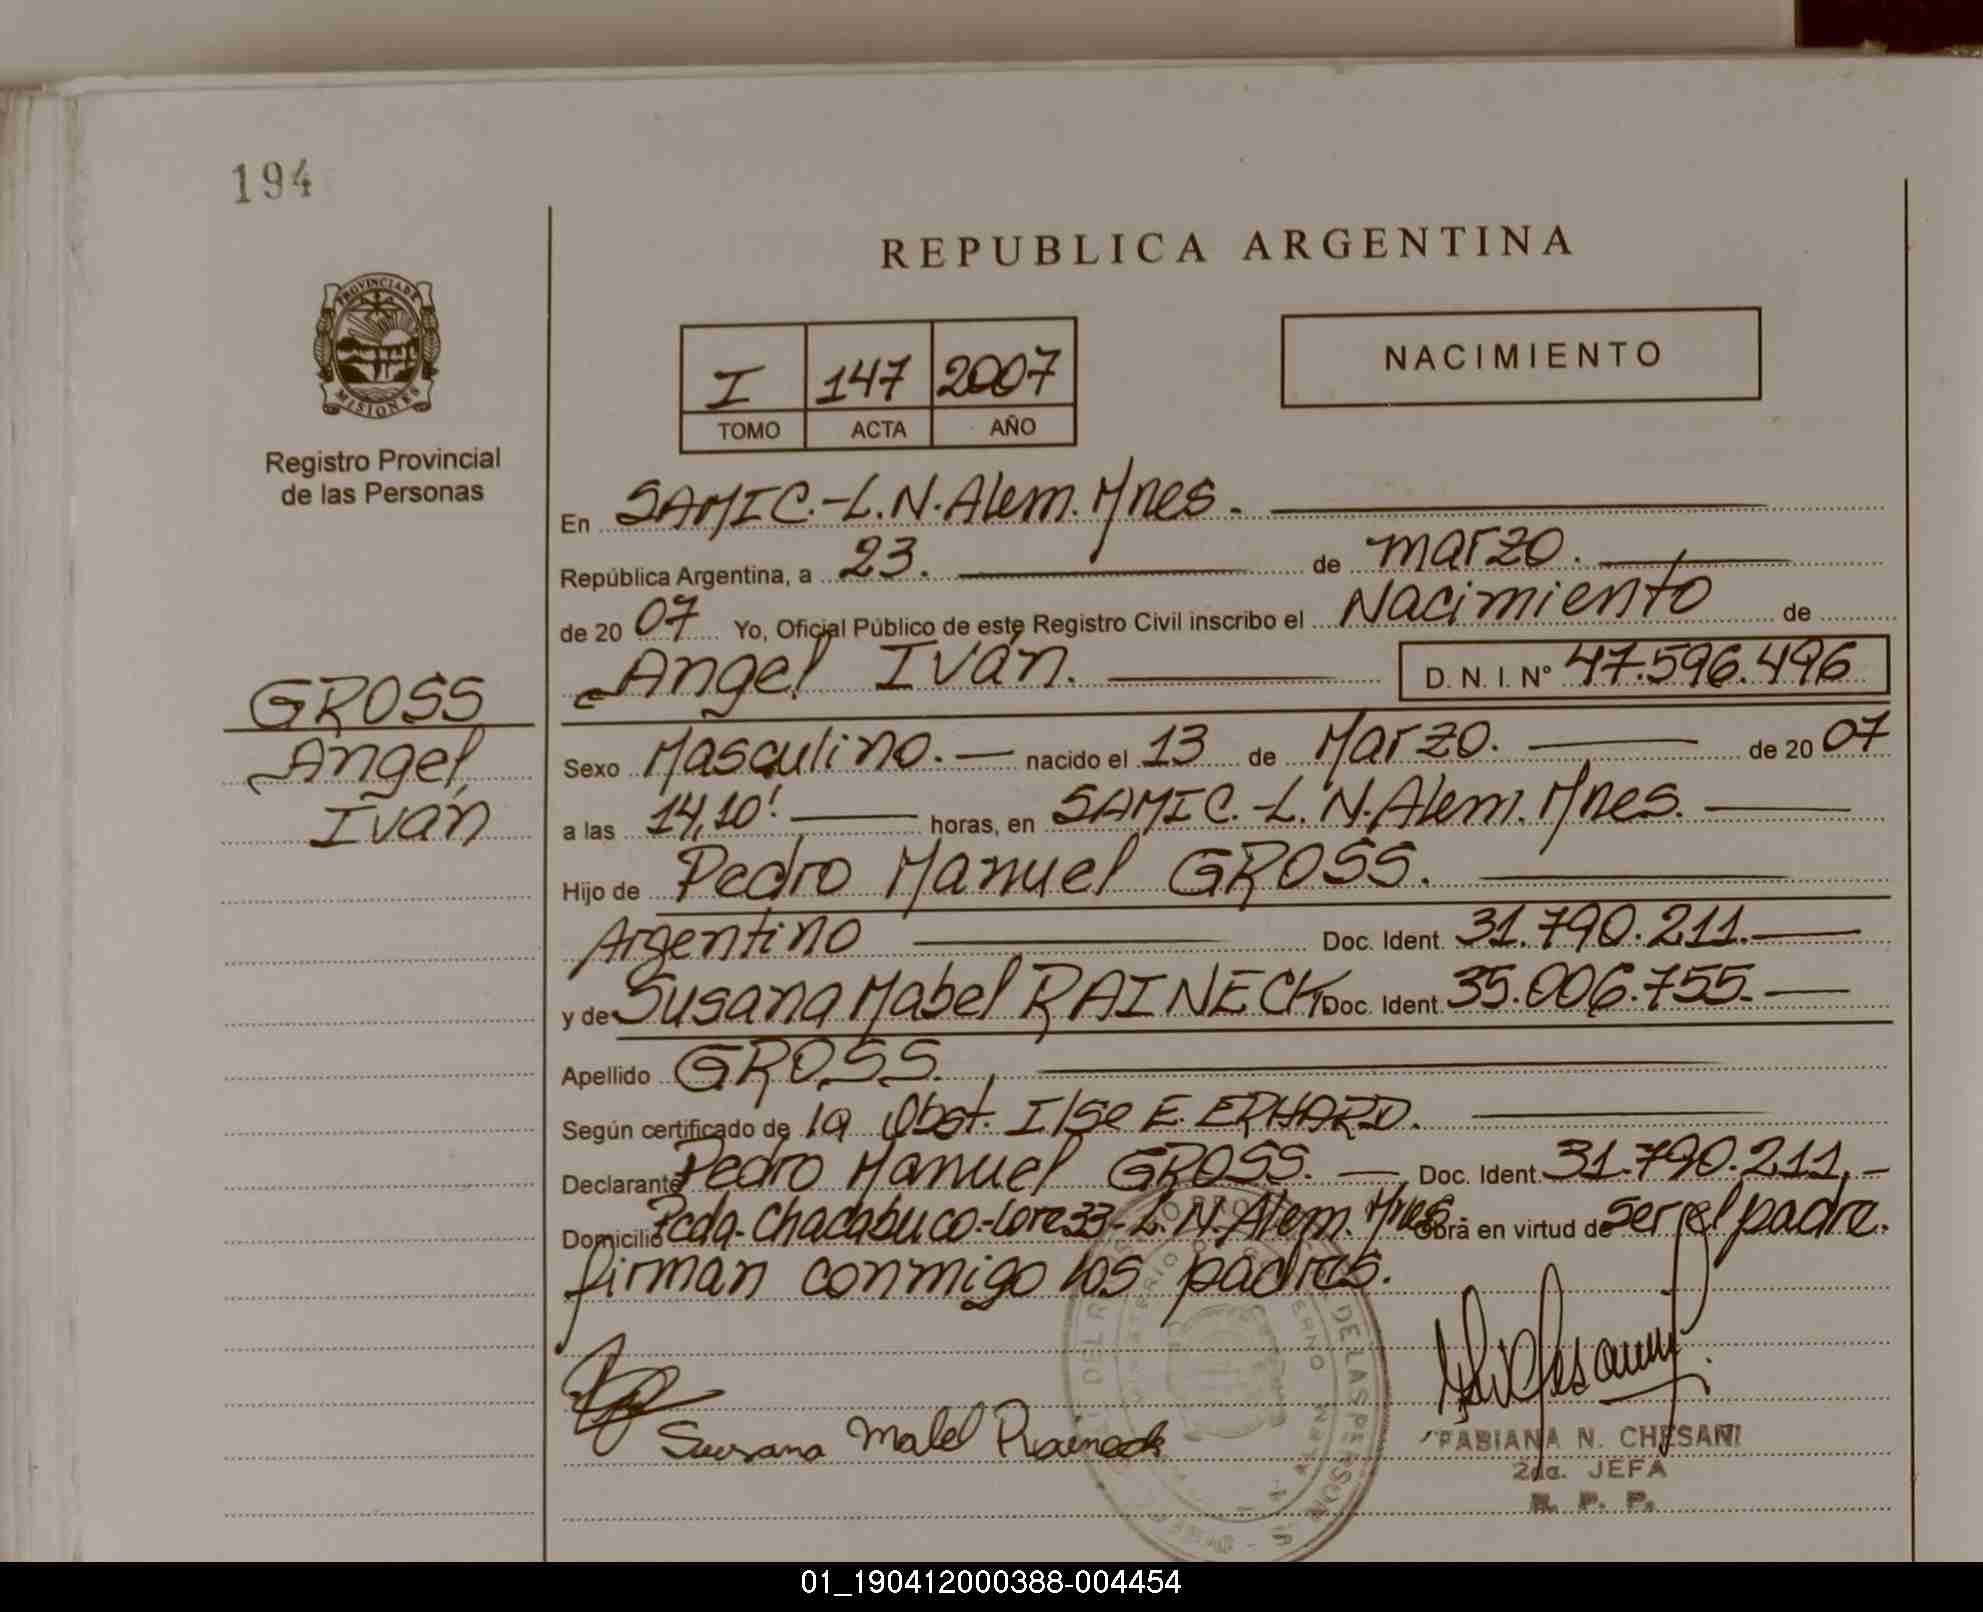 194
REPUBLICA ARGENTINA
PROVINCIA DE
MISIONES
Registro Provincial
de las Personas
I 147 2007
TOMO ACTA AÑO
NACIMIENTO
En SAMIC.-L.N.Alem.Mnes.
República Argentina, a 23. de marzo.
de 2007 Yo, Oficial Público de este Registro Civil inscribo el Nacimiento de
Angel Iván. D. N. I. Nº 47.596.496
GROSS
Angel
Iván
Sexo Masculino. nacido el 13 de Marzo. de 2007
a las 14,10' horas, en SAMIC.-L.N.Alem.Mnes.
Hijo de Pedro Manuel GROSS.
Argentino Doc. Ident. 31.790.211.
y de Susana Mabel RAINECK Doc. Ident. 35.006.755.
Apellido GROSS.
Según certificado de la Obst. Ilse E. ERHARD.
Declarante Pedro Manuel GROSS. Doc. Ident. 31.790.211.
Domicilio Pcda-Chacabuco-Lote33-L.N.Alem.Mnes. Obrá en virtud de ser el padre.
firman conmigo los padres.
Susana Mabel Raineck
DE LAS PERSONAS
FABIANA N. CHESANI
2da. JEFA
R. P. P.
01_190412000388-004454